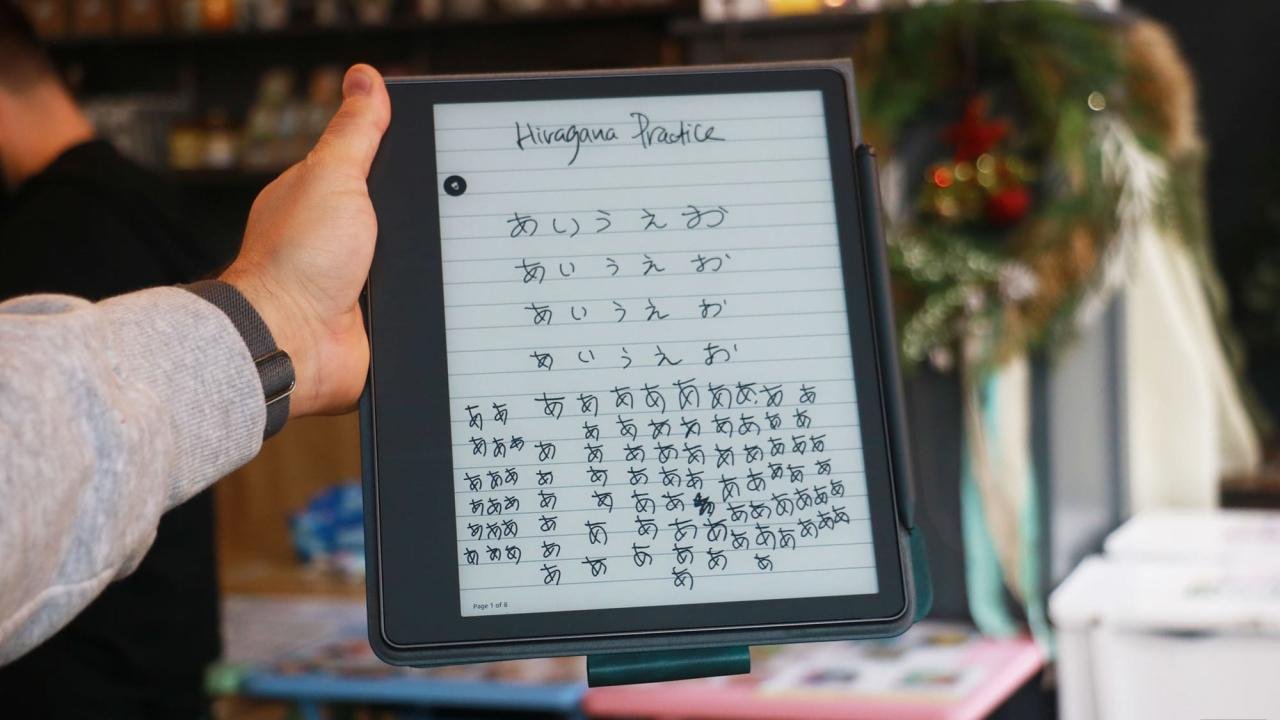 Hiragana Practice
あ い う え お
あ い う え お
あ い う え お
あ い う え お
あ あ あ あ あ あ あ あ あ あ あ
あ あ あ あ あ あ あ あ
あ あ あ あ あ あ あ あ あ あ あ あ あ
あ あ あ あ あ あ あ あ あ あ あ あ あ
あ あ あ あ あ あ あ あ あ あ あ あ あ
あ あ あ あ あ あ あ あ あ あ あ あ あ あ
あ あ あ あ あ あ あ あ あ
あ あ
Page 1 of 8